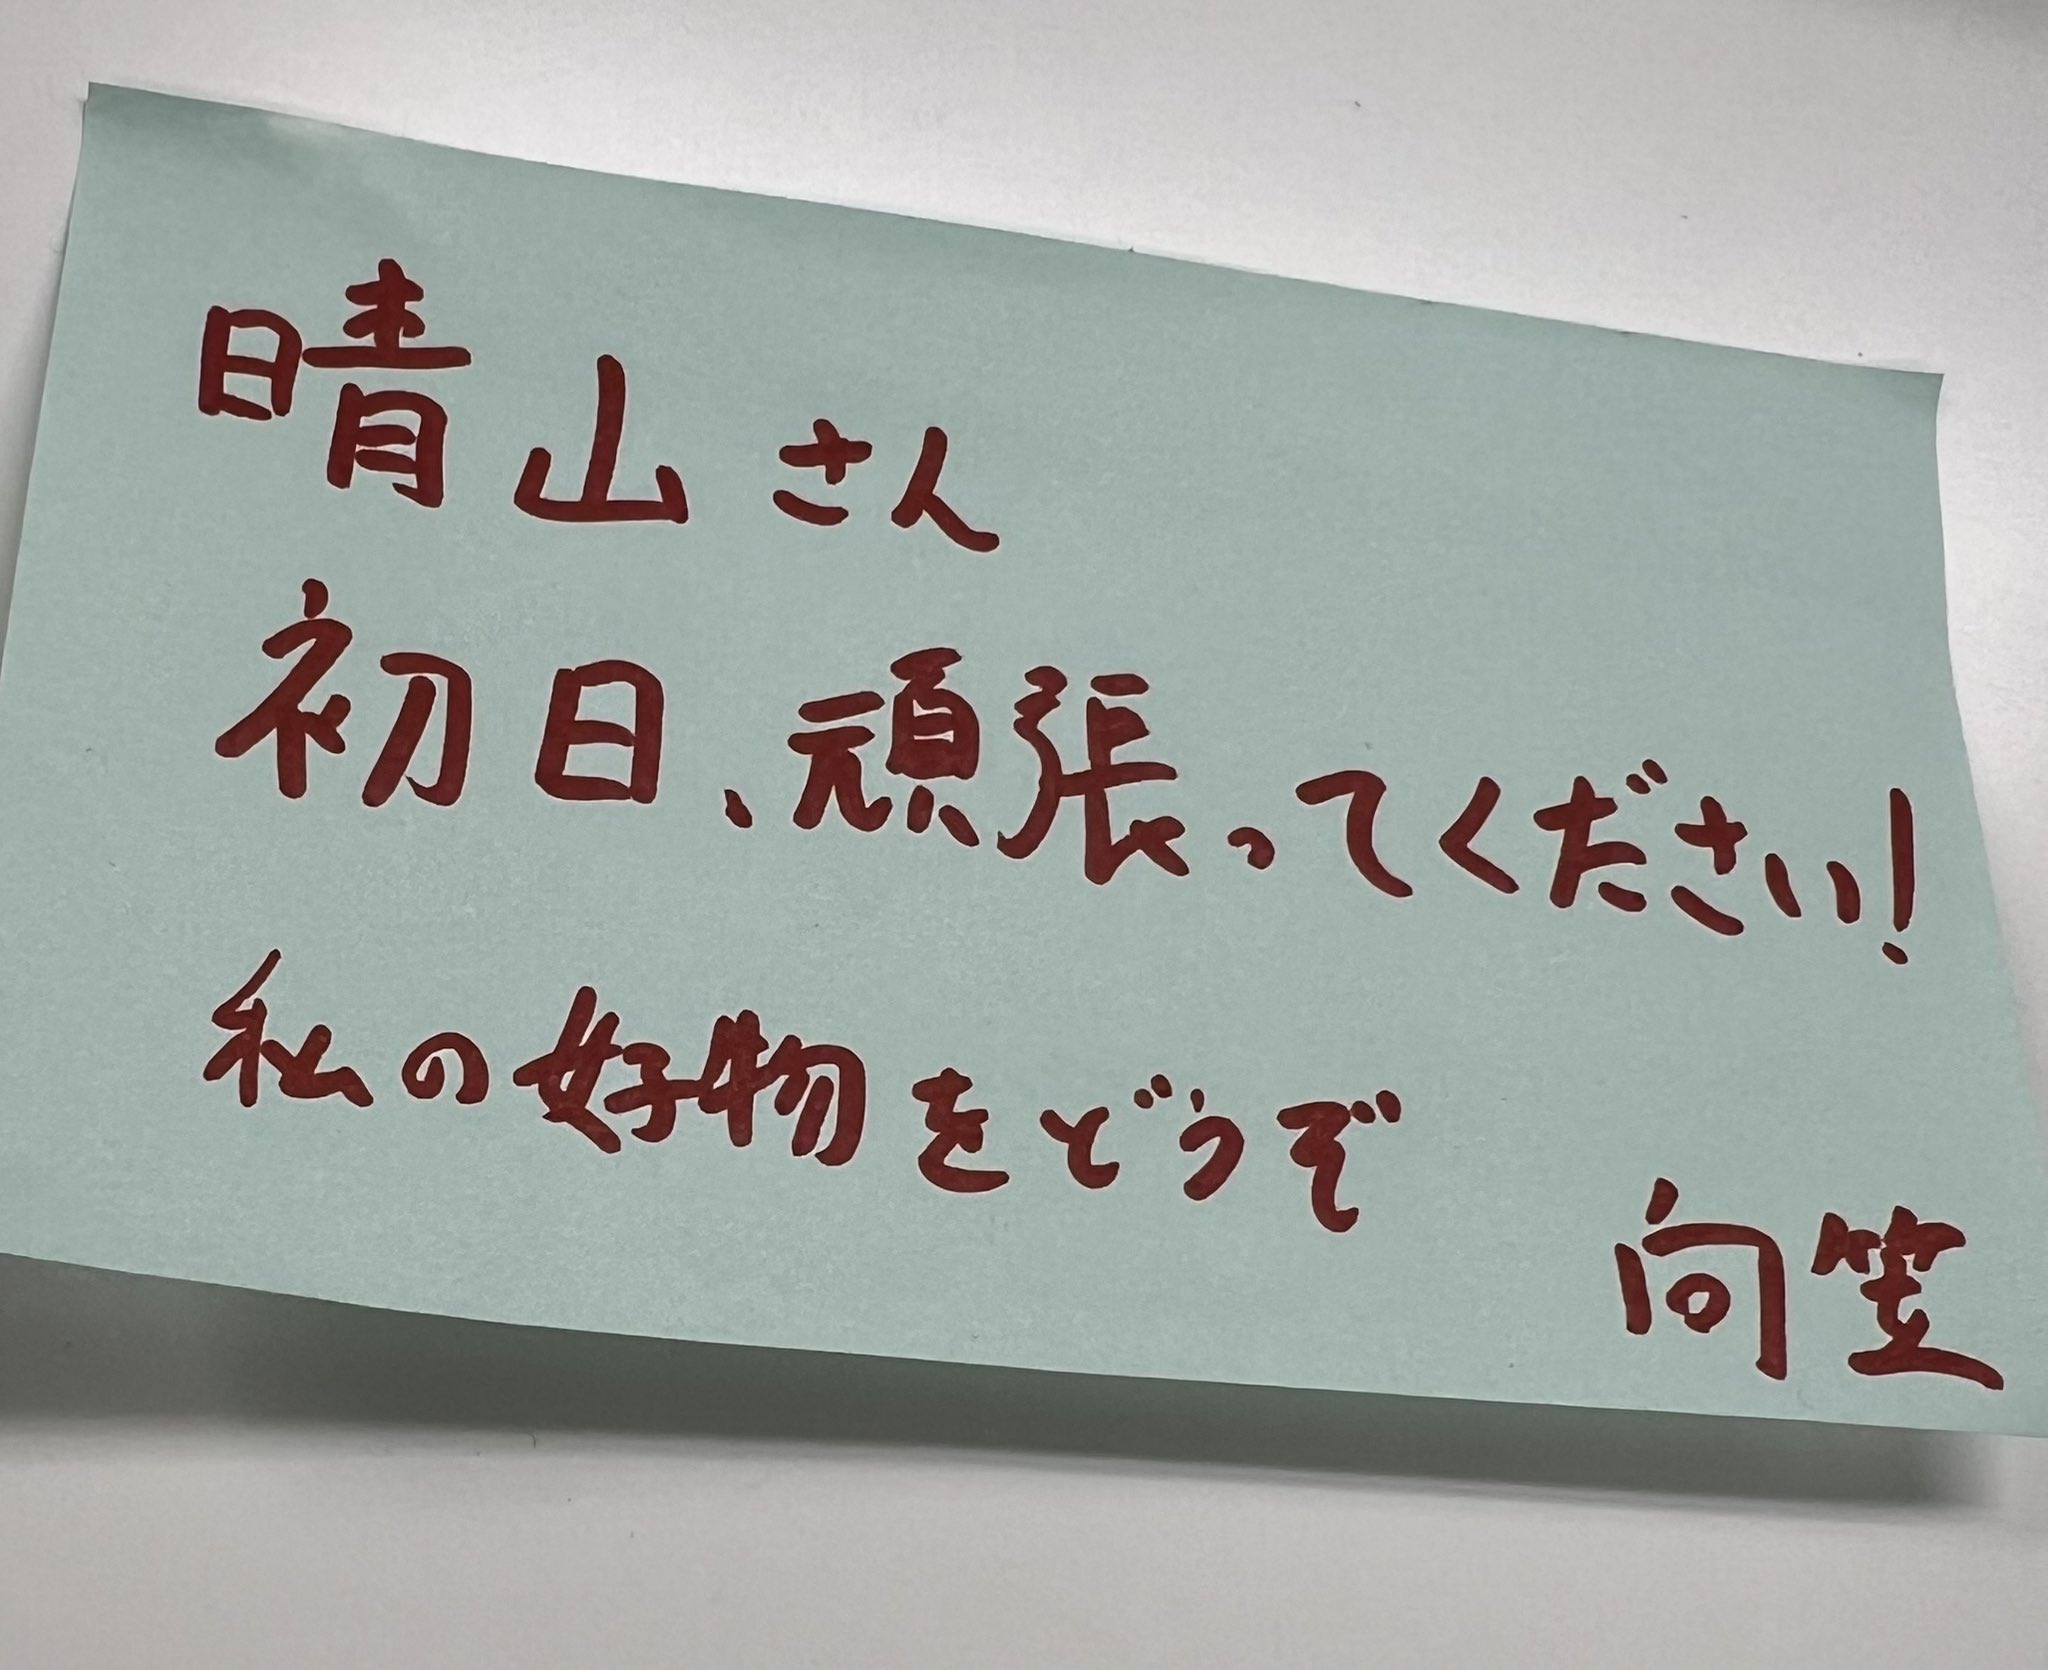 晴山さん
初日、頑張ってください!
私の好物をどうぞ
向笠